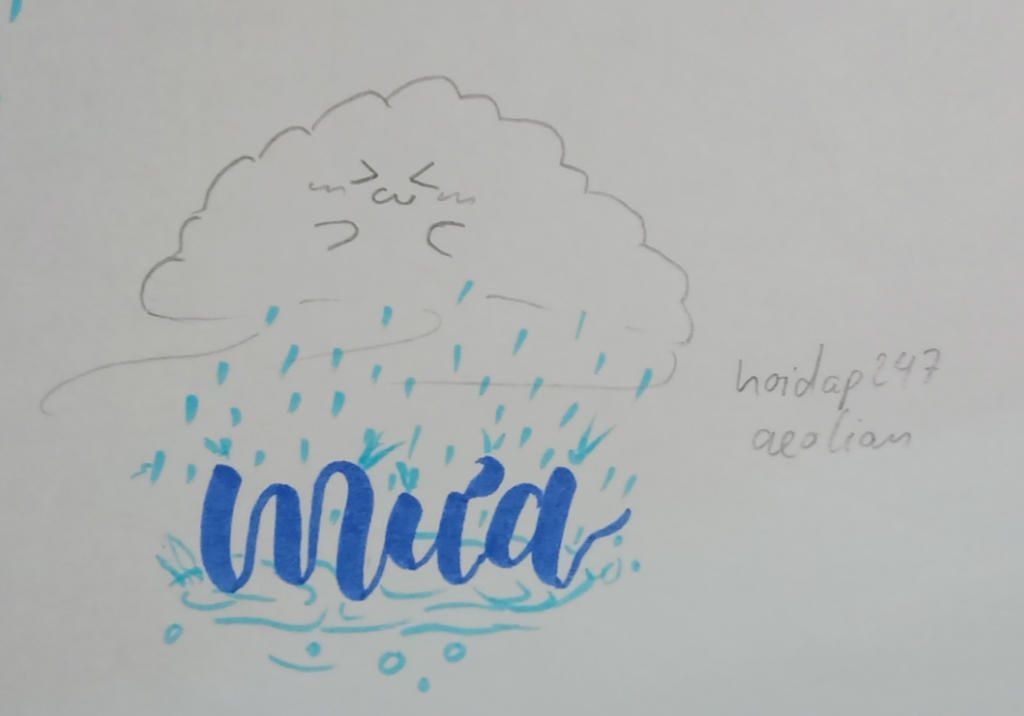 mưa
hoidap247
aeolian